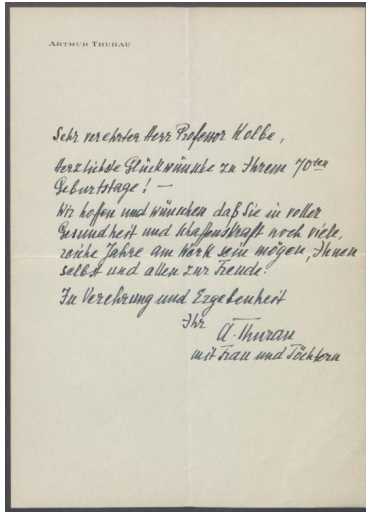 ARTHUR THURAU
Sehr verehrter Herr Professor Kolbe,
Herzlichste Glückwünsche zu Ihrem 70ten
Geburtstage! —
Wir hoffen und wünschen daß Sie in voller
Gesundheit und Schaffenskraft noch viele,
reiche Jahre am Werk sein mögen, Ihnen
selbst und allen zur Freude.
In Verehrung und Ergebenheit
Ihr
A. Thurau
mit Frau und Töchtern